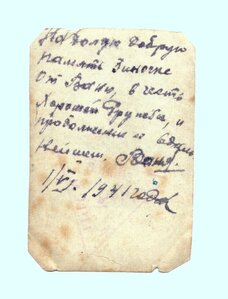 На долгую добрую
память Зиночке
От Вани, в честь
Хорошей Дружбы, и
продолжение её в даль
нейшем. Ваня.
1/VI. 1941 года